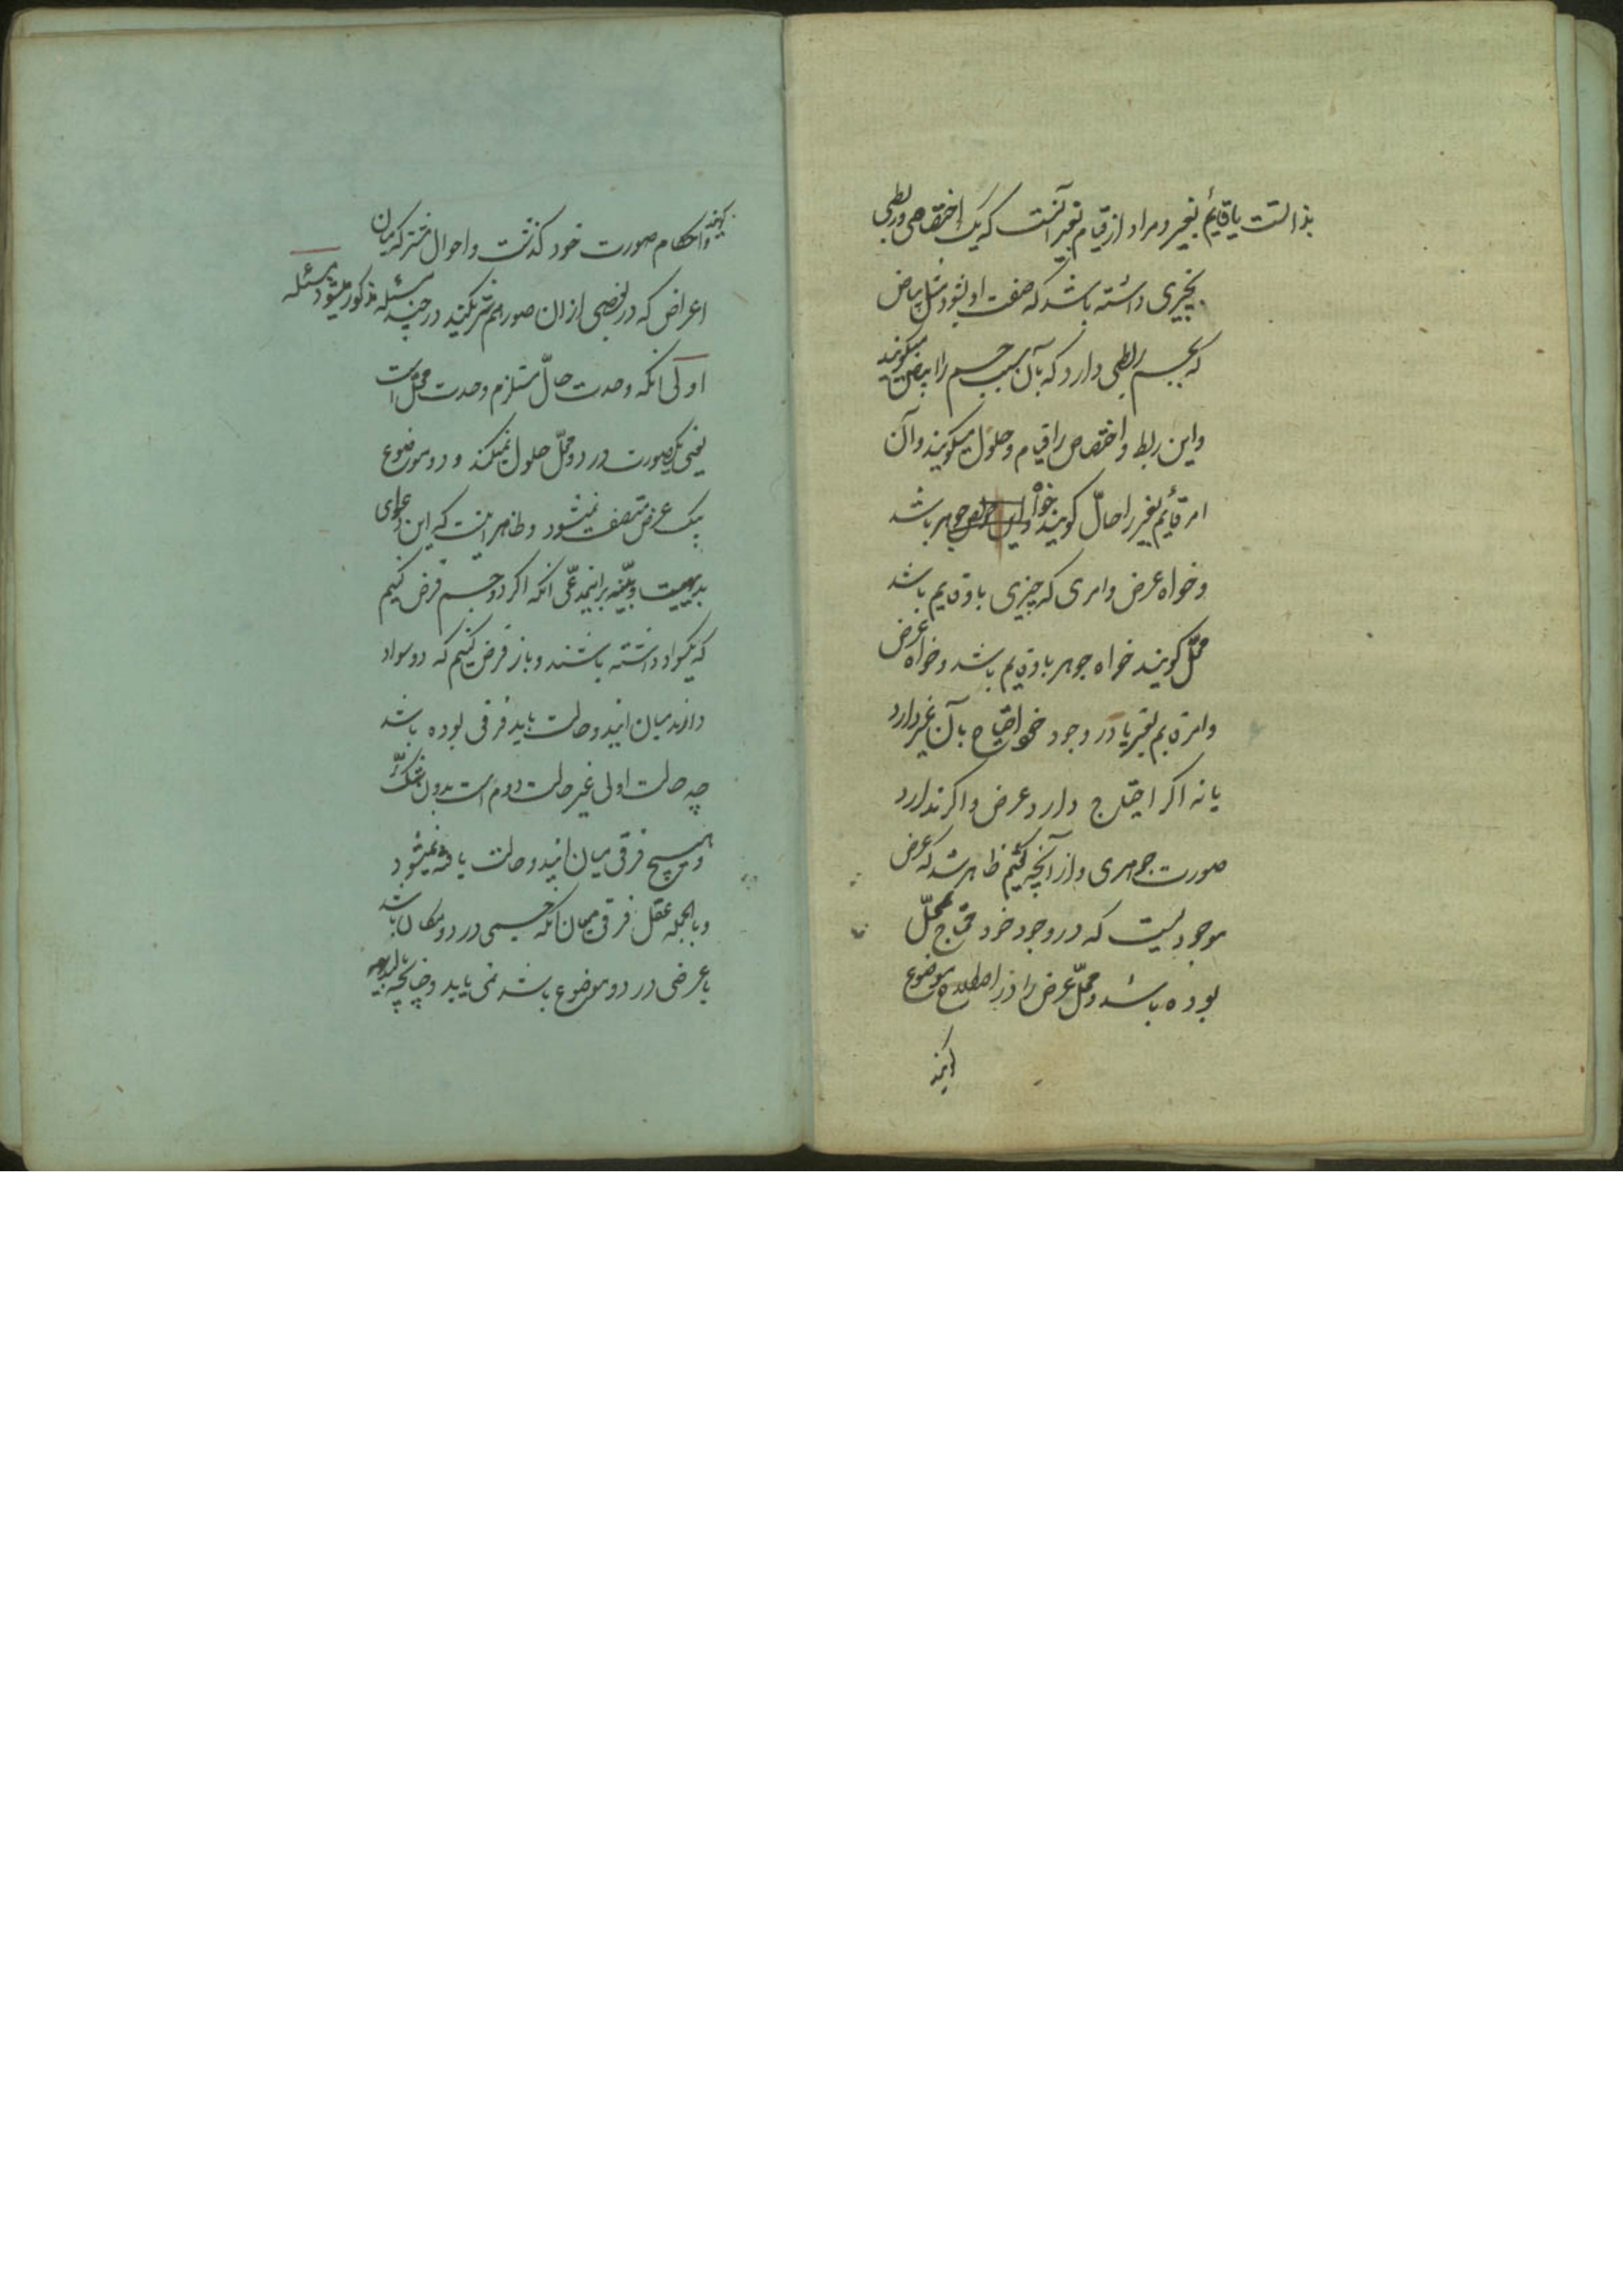 بذاتست یا قایم بغیر و مراد از قیام بغیر آنست که یک اختصاصی و ربطی
بچیزی داشته باشد که صفت او بشود مثل بیاض
که بجسم ربطی دارد که بآن سبب جسم را ابیض میکویند
و این ربط و اختصاص را قیام و حلول میکویند و آن
امر قایم بغیر را حالّ کویند خواه جوهر باشد
و خواه عرض و امری که چیزی باو قایم باشد
محلّ کویند خواه جوهر باو قایم باشد و خواه عرض
و امر قایم بغیر یا در وجود خود احتیاج بآن غیر دارد
یا نه اکر احتیاج دارد عرض و اکر ندارد
صورت جوهری و از آنچه کفتیم ظاهر شد که عرض
موجودیست که در وجود خود محتاج بمحلّ
بوده باشد و محلّ عرض را در اصطلاح موضوع
کویند
کویند و احکام صورت خود کذشت و احوال مشترکه میان
اعراض که در بعضی از ان صور هم شریکند در چند مسئله مذکور میشود مسئله
اولی انکه وحدت حالّ مستلزم وحدت محلّ است
یعنی یکصورت در دو محلّ حلول نمیکند و دو موضوع
بیک عرض متصف نمیشود و ظاهر اینست که این دعوای
بدیهیست و بیّنه بر اینمدعّی انکه اکر دو جسم فرض کنیم
که یکسواد داشته باشند و باز فرض کنیم که دو سواد
دارند میان ایندو حالت باید فرقی بوده باشد
چه حالت اولی غیر حالت دوم است بدون شک
و هیچ فرقی میان ایندو حالت یافته نمیشود
و بالجمله عقل فرقی میان انکه جسمی در دو مکان باشد
یا عرضی در دو موضوع باشد نمی یابد و چنانچه